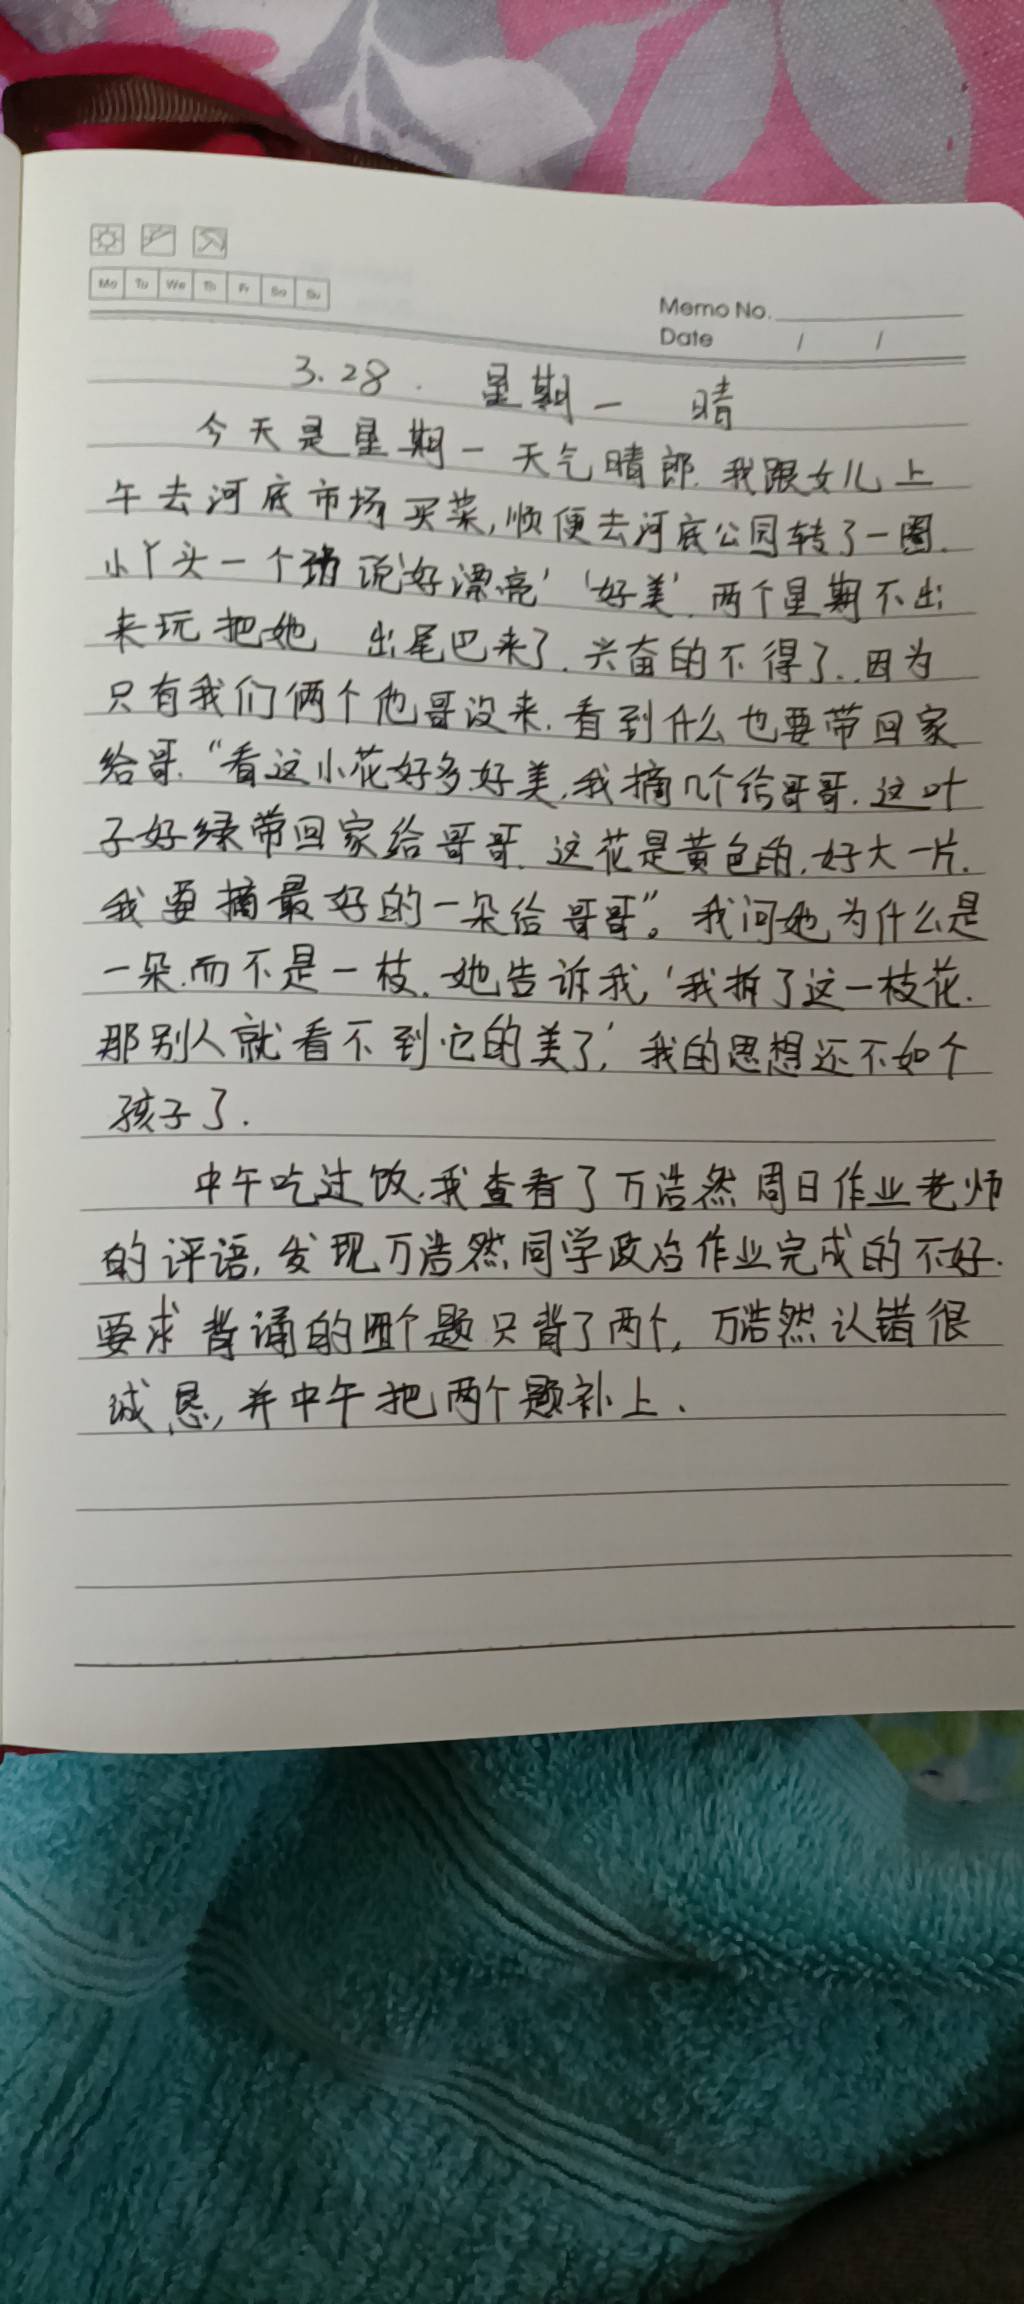 Mo Tu We Th Fr Sa Su
Memo No.
Date / /
3.28. 星期一 晴
今天是星期一天气晴郎.我跟女儿上
午去河底市场买菜,顺便去河底公园转了一圈.
小丫头一个劲说'好漂亮' '好美'.两个星期不出
来玩把她 出尾巴来了.兴奋的不得了..因为
只有我们俩个他哥没来.看到什么也要带回家
给哥.“看这小花好多好美,我摘几个给哥哥.这叶
子好绿带回家给哥哥.这花是黄色的,好大一片.
我要摘最好的一朵给哥哥”。我问她为什么是
一朵.而不是一枝.她告诉我,'我拆了这一枝花.
那别人就看不到它的美了' 我的思想还不如个
孩子了.
中午吃过饭.我查看了万浩然周日作业老师
的评语,发现万浩然同学政治作业完成的不好.
要求背诵的四个题只背了两个,万浩然认错很
诚恳,并中午把两个题补上.